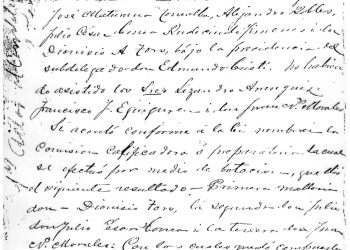 José Maturana González, Alejandro
Julio César Rudecindo Jimenez i don
Dionisio A. Toro, bajo la presidencia del
subdelegado don Edmundo No habiendo
asistido los Sres Lizandro Aranguez
Francisco J. Eyzaguirre i don Juan N. Morales.
Se acordó conforme á la lei nombrar la
comision calificadora ó preparatoria la cual
se efectuó por medio de botacion, que dió
el siguiente resultado - Primera malloria
don - Dionisio Toro, la segunda don Julio
don Julio Cesar i la tercera don Juan
N. Morales. Con los cuales quedó compuesta